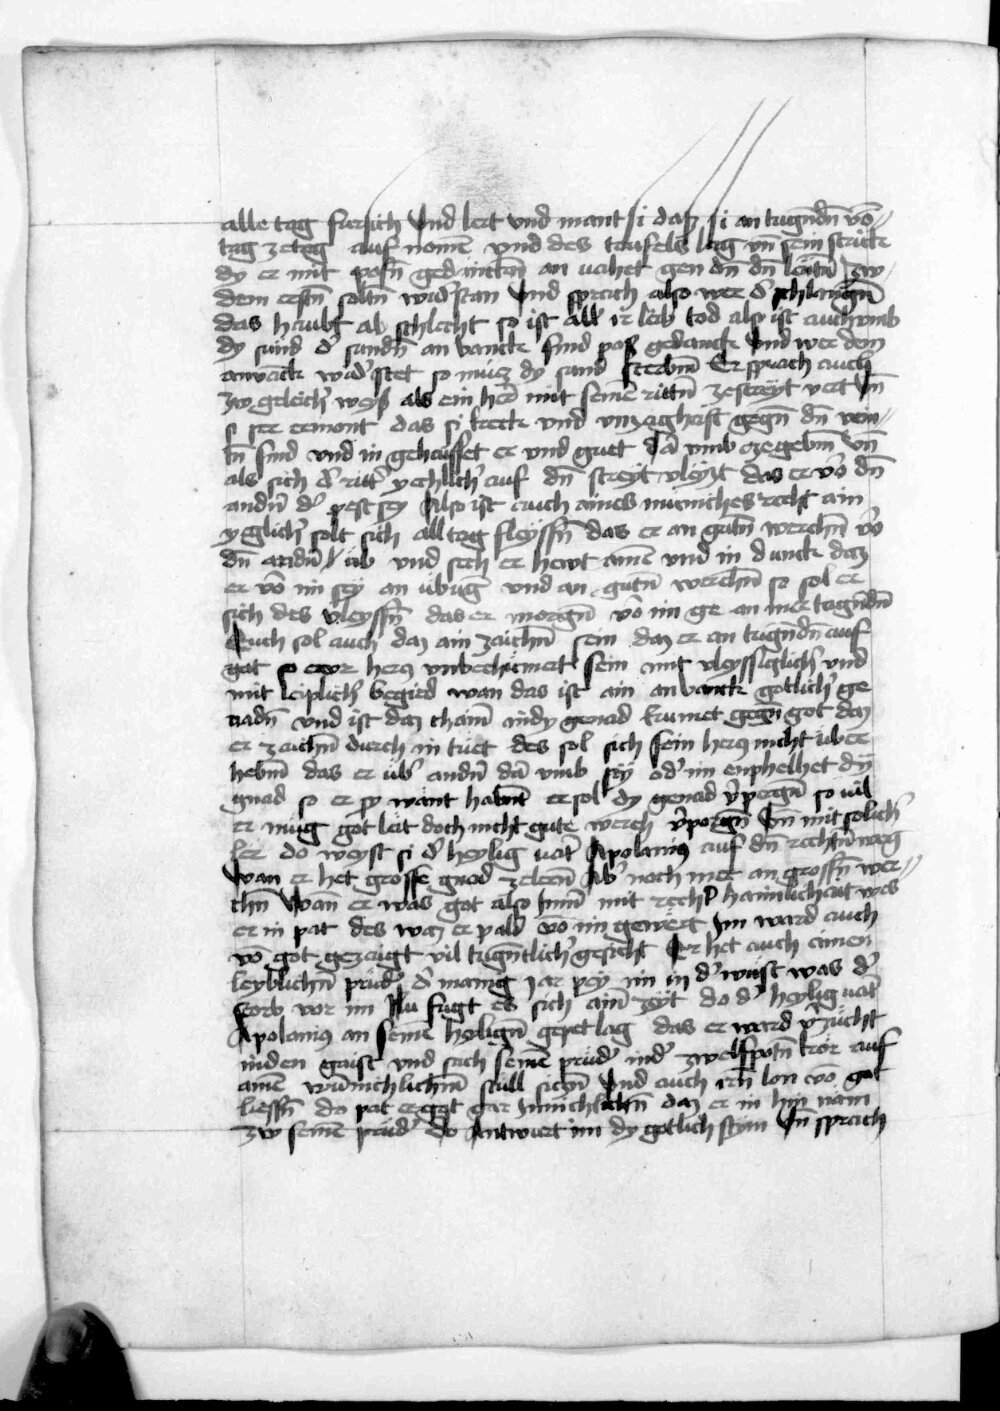 alle tag fur sich Und lert vnd mant si daz si an tugñdñ võ
tag ze tag auf nomẽ vnd des teufels lag vñ sein strick
dy er mit posñ gedanckñ an vahet gen dñ dñ leutñ zw
dem erstñ soltñ wid' stan Und sprach also wer d' schlangñ
das haubt ab schlecht so ist all ir leib tod also ist auch vmb
dy sund d' sundñ an vanck sind pos gedanck Und wer dem
anvanck wid' stet so muez dy sund sterbñ Er sprach auch
zw geleich' weyß als ein her mit seinẽ rittñ ze streyt vert Uñ
si ser ermont das si keck vnd vnzaghaft gegñ dñ vein
tñ sind vnd in gehaisset er vnd guet dã vmb cze gebñ Uñ
als sich d' ritt' yechlich' auf dñ streyt vleyzt das er vo dñ
andñ d' pest sey Also ist auch aines muniches recht ain
yglich' solt sich all tag fleyssñ das er an gutñ werchñ vo
dñ andñ üb und sech er hewt ainẽ vnd in dunck daz
er vo im sey an übũg vnd an gutñ werchñ so sol er
sich des vleyssñ das er morgñ vo im ge an mer tugñdñ
Auch sol auch daz ain zaichñ sein daz er an tugñdñ auf
get so ewr hercz vnbechumert sein mit vleyssiglich' vnd
mit leiplich' begird wan das ist ain anvanck gotlich' ge
nadñ vnd ist daz chainẽ in dy genad kumet gegñ got daz
er zaichñ durch in tuet des sol sich sein hercz nicht über
hebñ das er üb' andñ dã vmb sey od' im enphelhet dy
gnad so er sy want habñt er sol dy genad v'pergñ so vil
er mug got leit doch nicht gute werch v'porgñ Uñ mit solich'
ler do weyst si d' heylig vat' Apolanius auf dñ rechtñ weg
Wan er het grosse gnad ze lernñ Ab' noch mer an grossñ wer
chñ Wan er was got also in mit recht' haimlichait was
er in pat des waz er pald võ im gewert Im ward auch
võ got gezaigt vil tugñtlich' gesicht Er het auch ainen
leyblichñ prud' d' manig jar pey im in d' wüst was d'
storb vor im Nu fugt es sich ainẽ zeyt do d' heylig vat'
Apolanius an seinẽ heyligñ gepet lag das er ward v'zucht
in den gaist vnd sach seinẽ prud' in d' zwelfpotñ kor auf
ainẽ wunichlichñ stull siczñ Und auch irñ lon võ got
liessñ do pat er got gar inniclichñ daz er in hin nam
zw seinẽ prud' do Antwurt im dy gotlich stym Uñ sprach